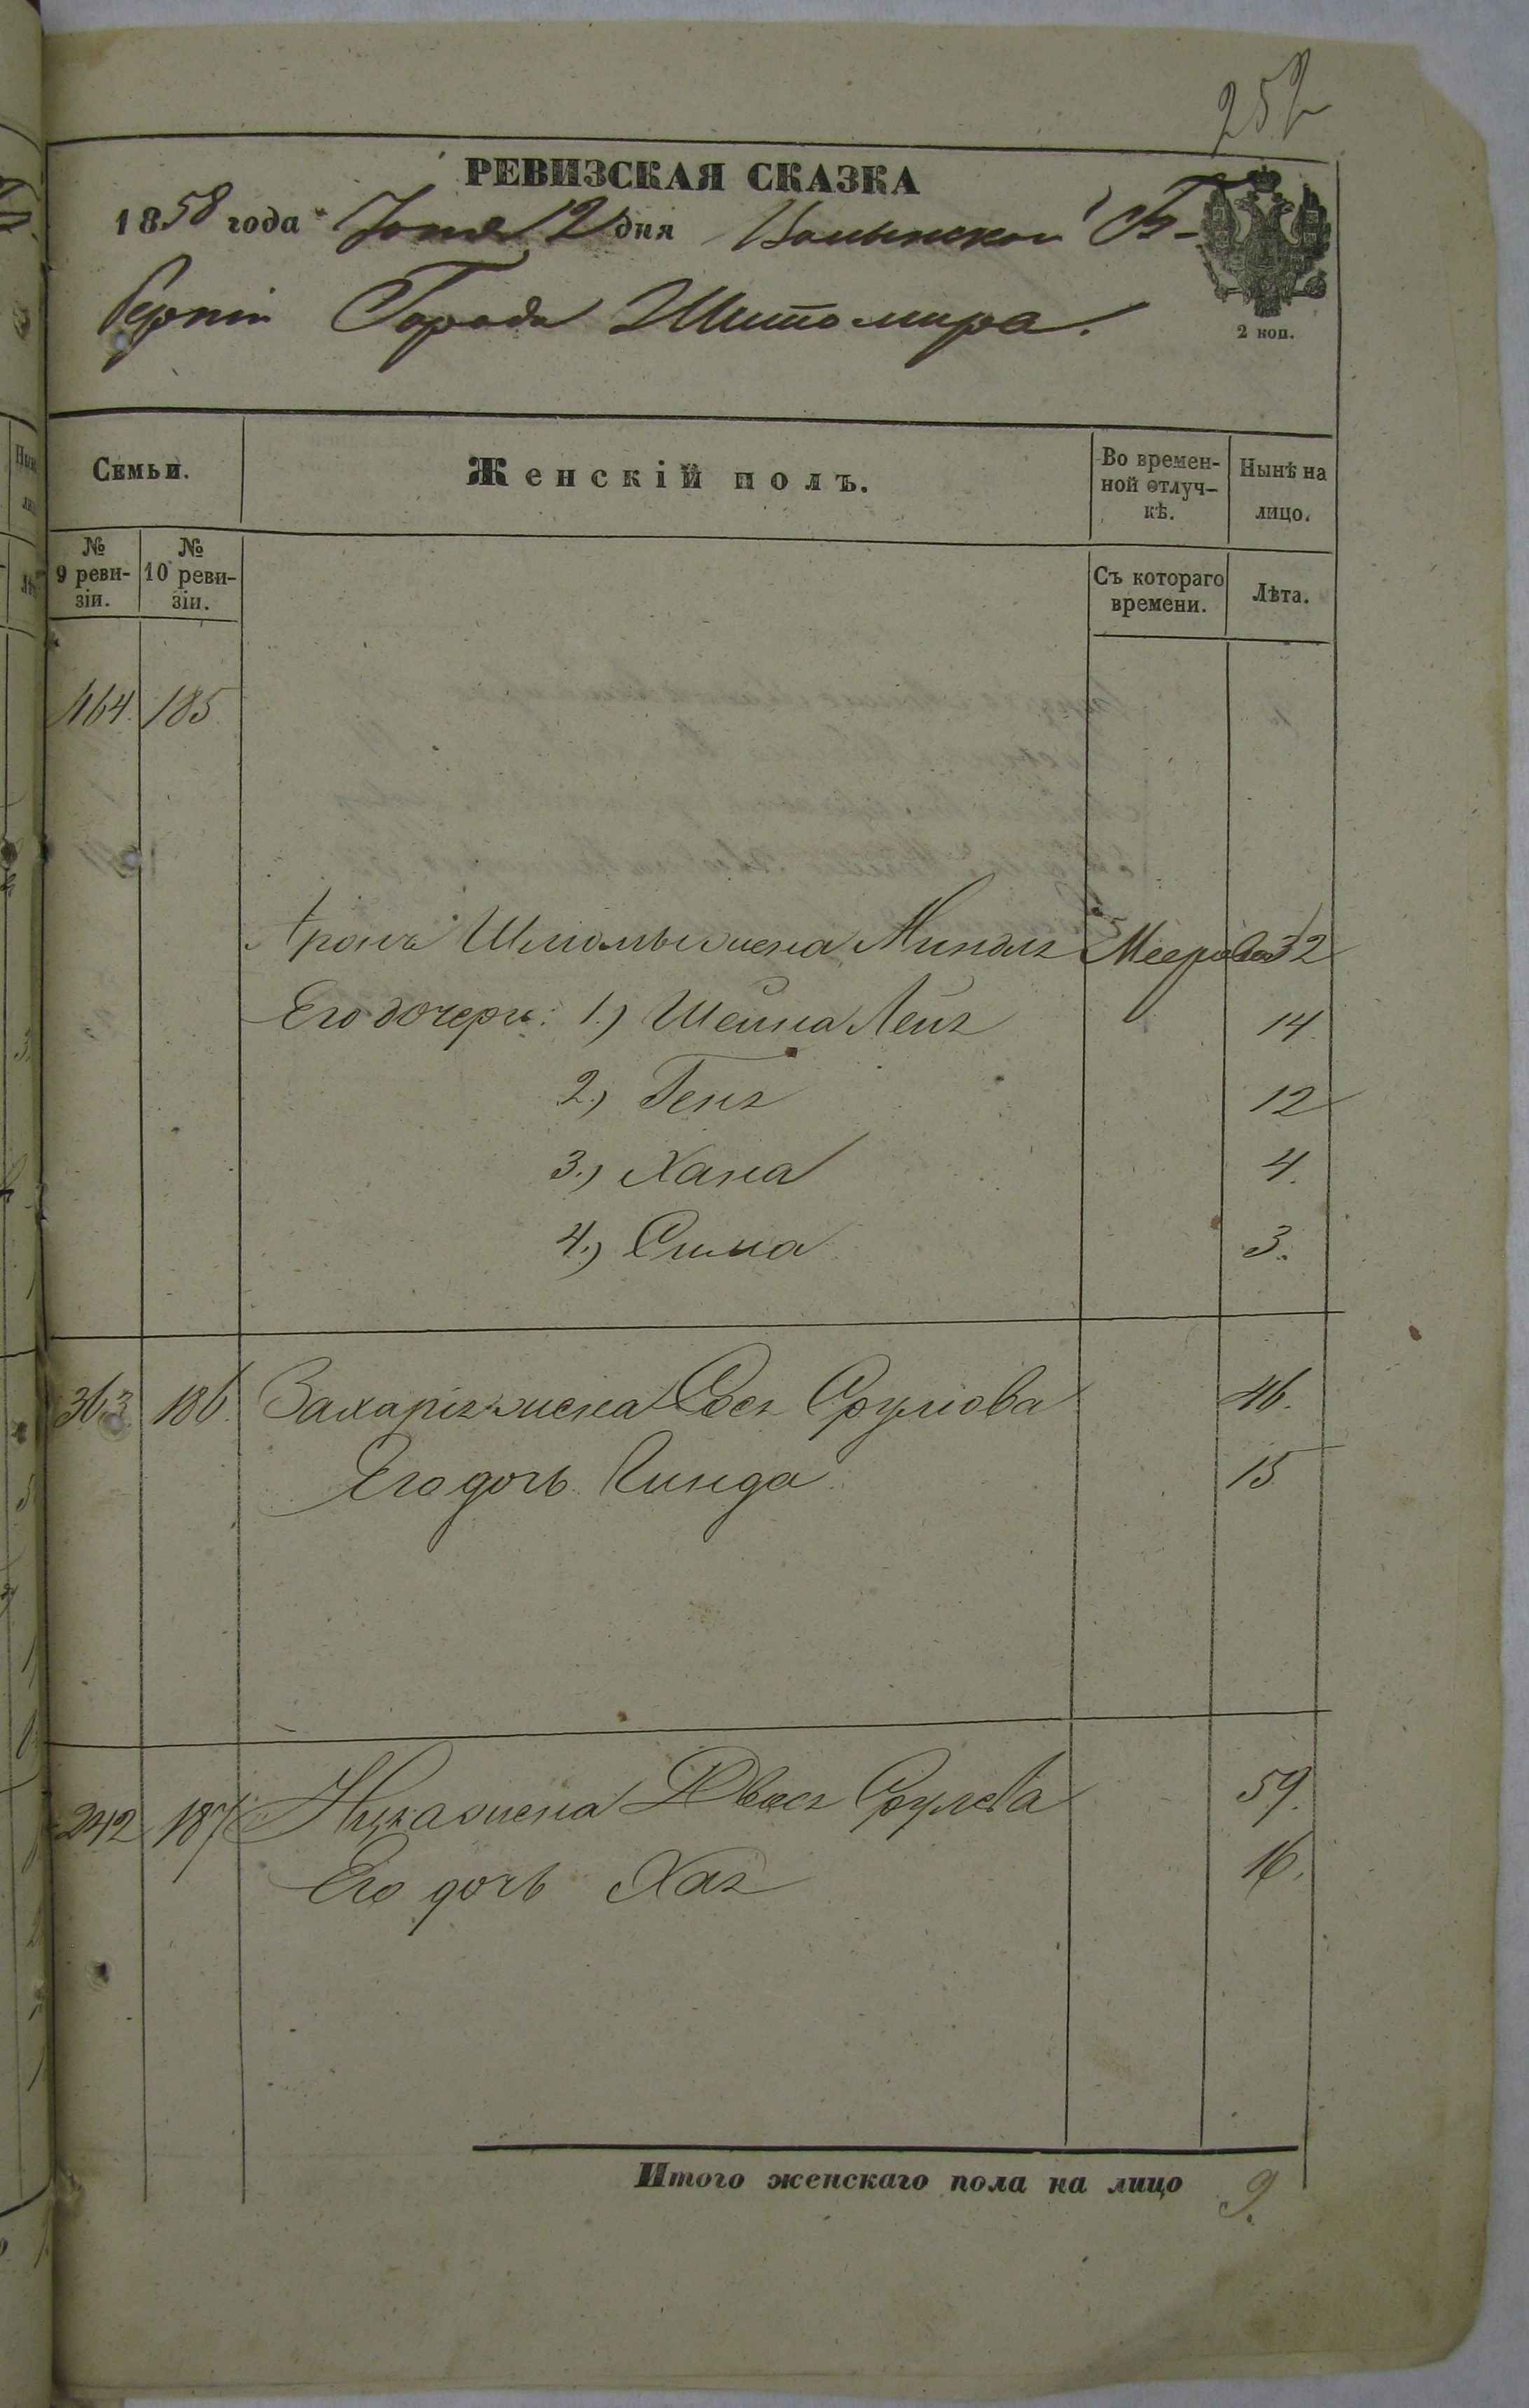 252
РЕВИЗСКАЯ СКАЗКА
1858 года Іюня 12 дня Волынской Гу-
берніи Города Житомира.
2 коп.
Семьи. Женскій полъ. Во времен- Нынѣ на
ной отлуч- лицо.
кѣ.
№ № Съ котораго Лѣта.
9 реви- 10 реви- времени.
зіи. зіи.
464. 185.
Аронъ Шлиомы жена Миндля Меерова 32
Его дочери: 1.) Шейна Лея 14.
2.) Геня 12
3.) Хана 4.
4.) Сима 3.
363 186. Захарія жена Сося Срулiова 46.
Его дочь Гинда 15
242 187 жена Двося Срулева 59.
Его дочь Хая 16.
Итого женскаго пола на лицо 9.